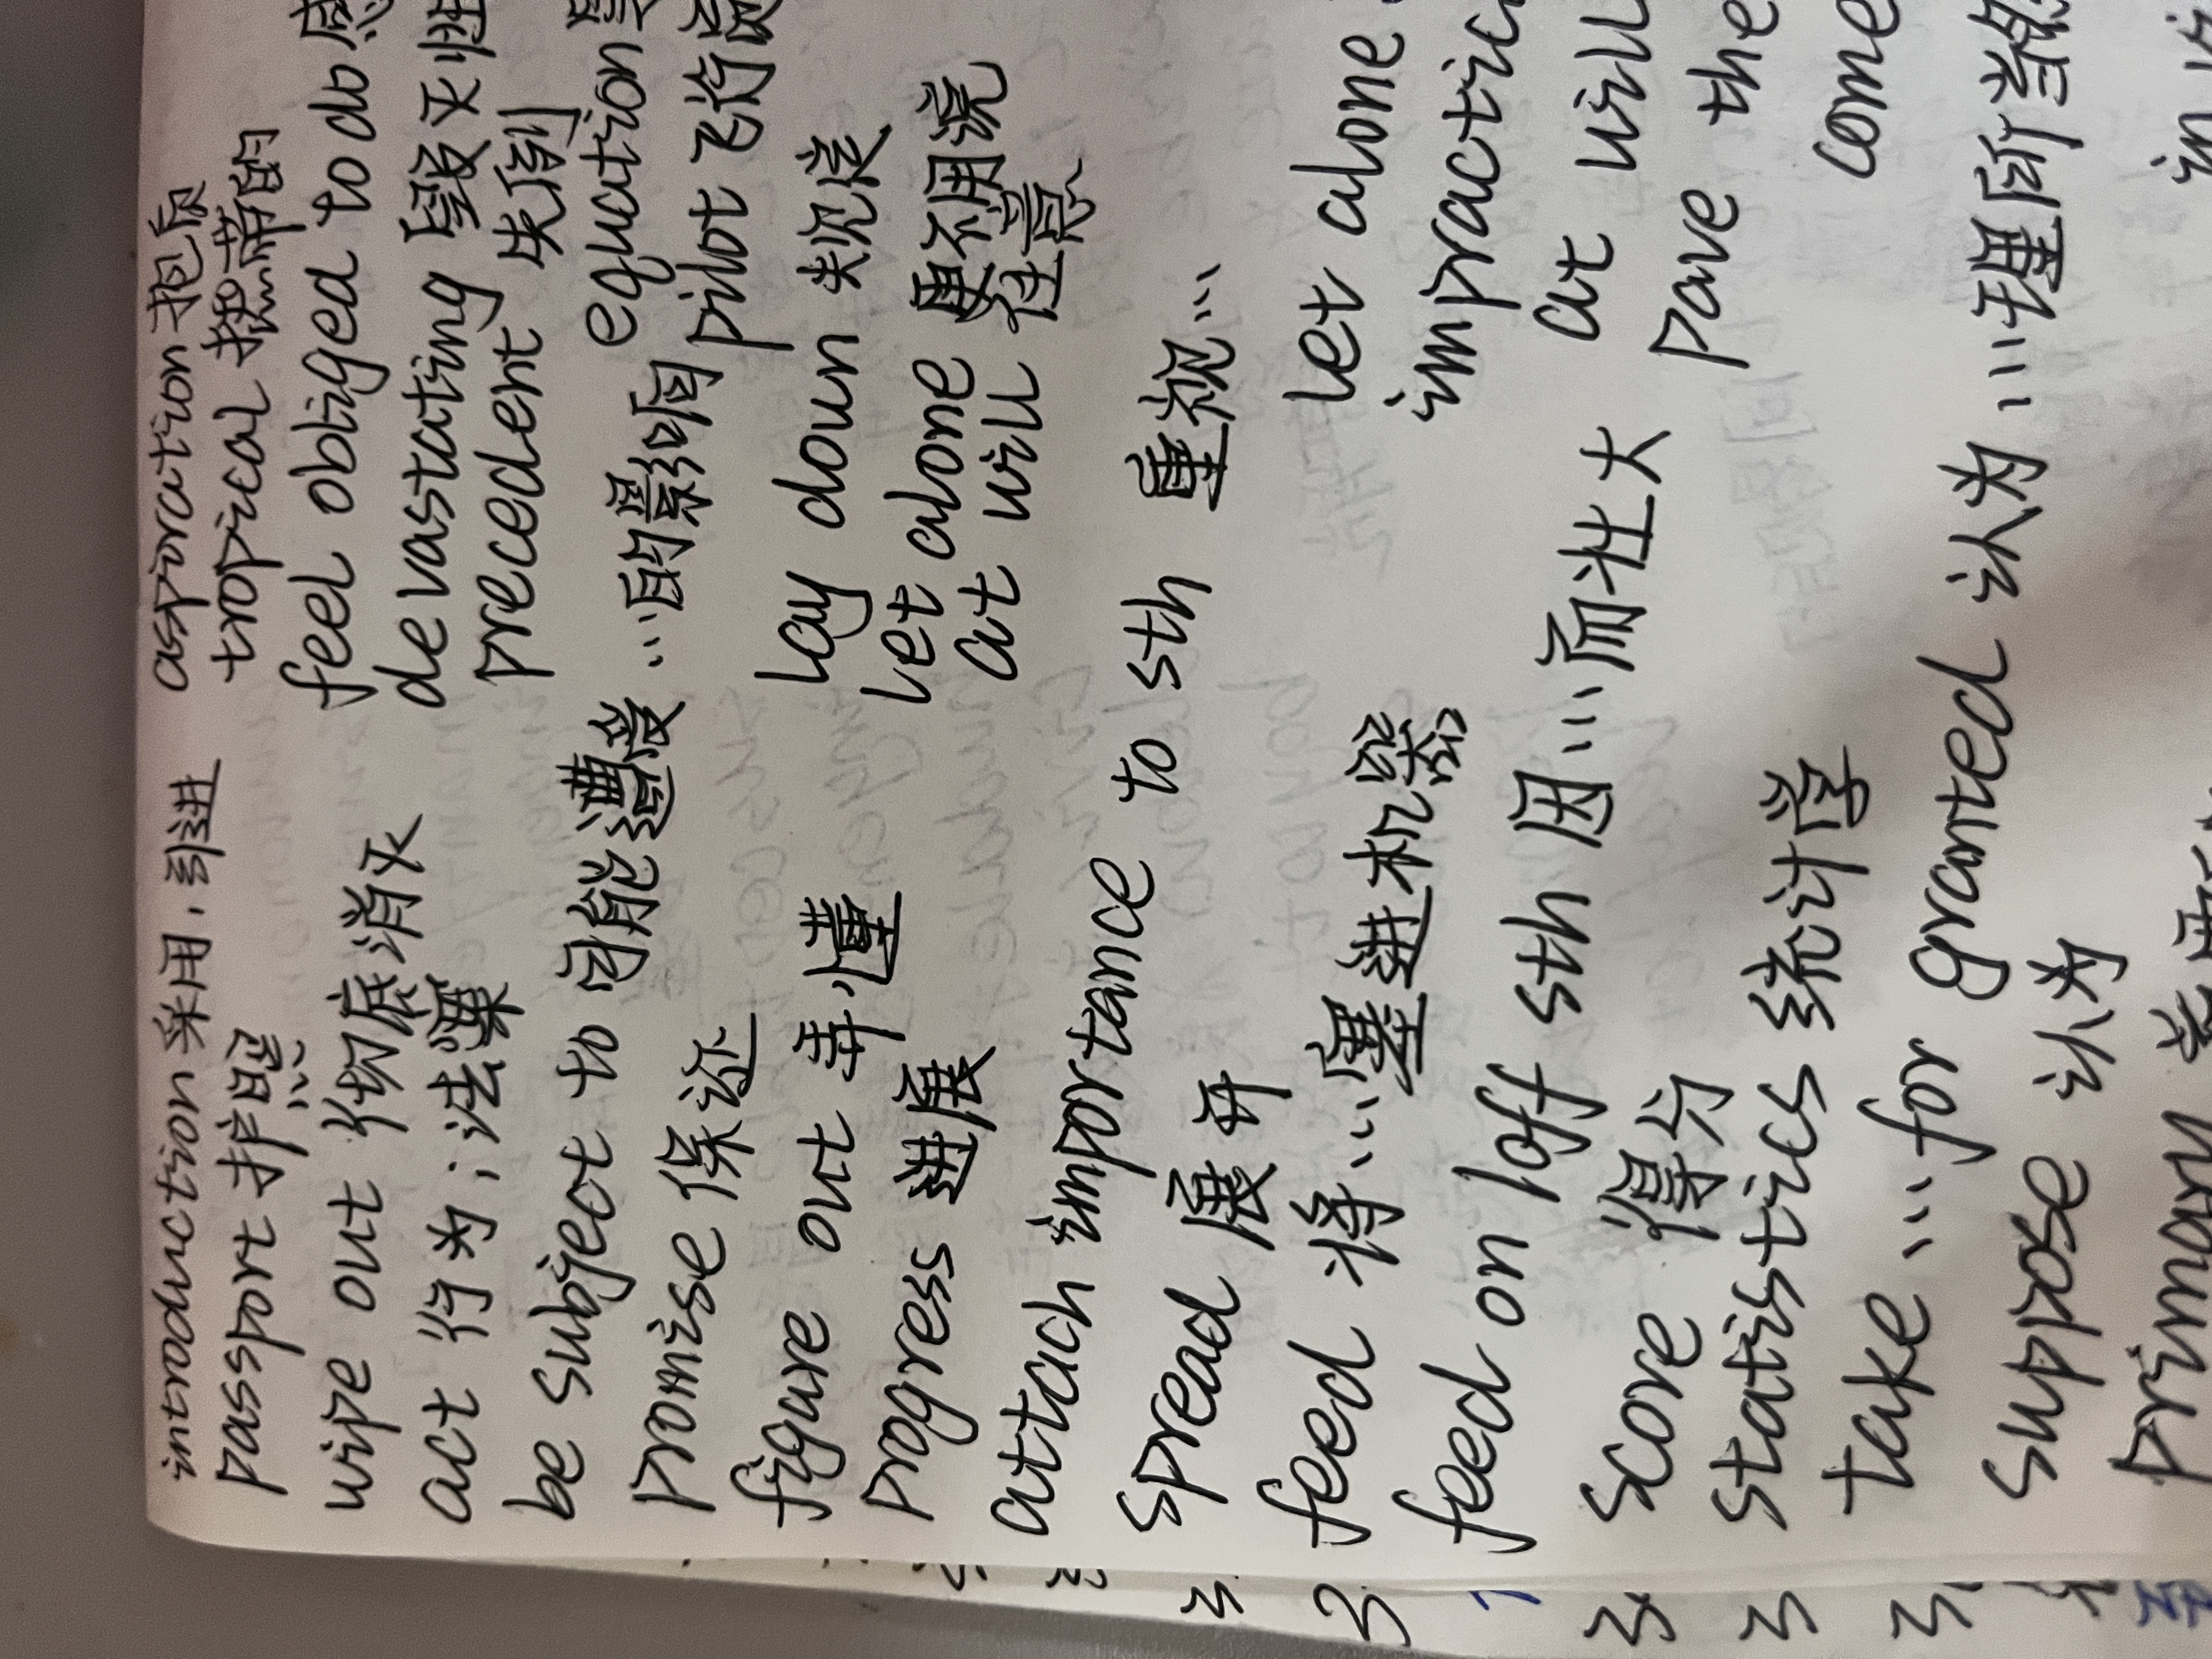 introduction 采用，引进 aspiration 抱负
passport 护照 tropical 热带的
wipe out 彻底消灭 feel obliged to do
act 行为；法案 devastating 毁灭性
be subject to 可能遭受 precedent 先例
promise 保证 …的影响 equation
figure out 弄懂 lay down pilot 飞行
progress 进展 let alone 更不用说
attach importance to sth 重视… at will 任意
spread 展开
feed 将…塞进机器 let alone
feed on/off sth 因…而壮大 impractic
score 得分 at will
statistics 统计学 pave the
take…for granted 认为…理所当然 come
suppose 认为
primary